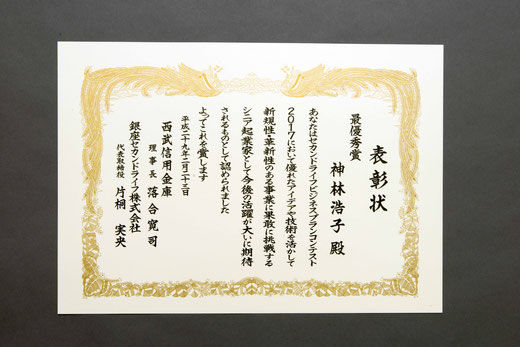 表彰状
最優秀賞
神林浩子 殿
あなたはセカンドライフビジネスプランコンテスト
2017において優れたアイデアや技術を活かして
新規性・革新性のある事業に果敢に挑戦する
シニア起業家として今後の活躍が大いに期待
されるものとして認められました
よってこれを賞します
平成二十九年二月二十三日
西武信用金庫
理事長 落合寛司
銀座セカンドライフ株式会社
代表取締役 片桐実央